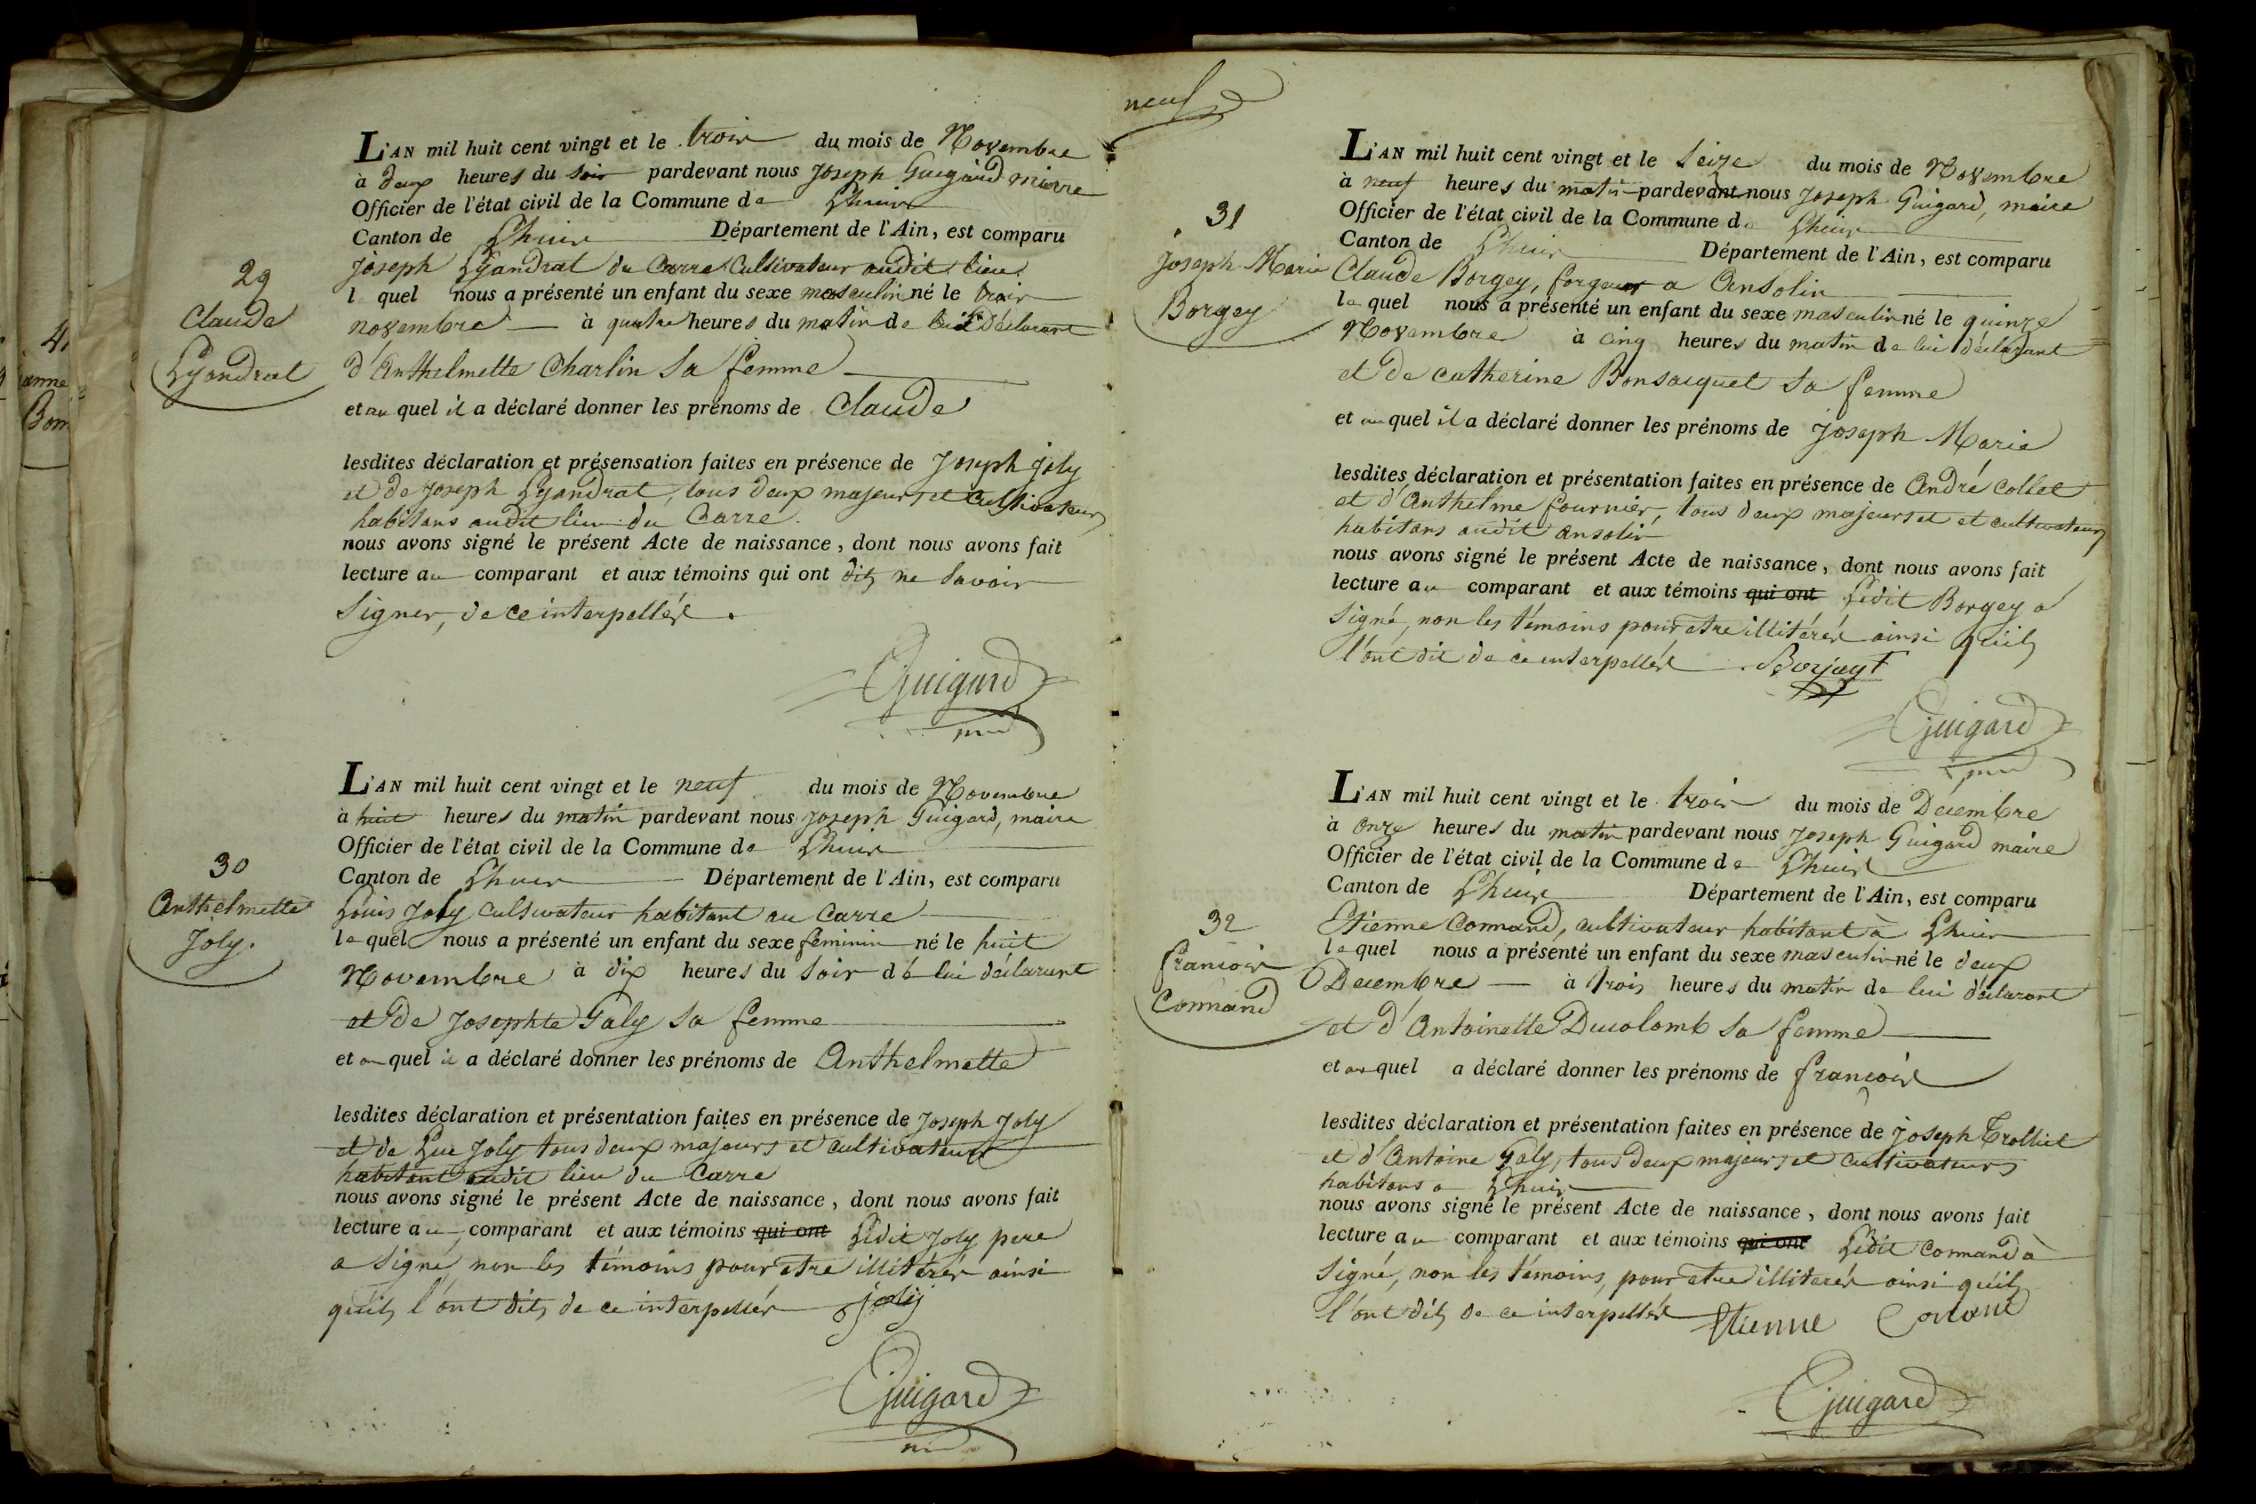 29
Claude
Lyandrat
L'AN mil huit cent vingt et le trois du mois de Novembre
à deux heures du soir pardevant nous Joseph Guigard maire
Officier de l'état civil de la Commune de Lhuis
Canton de Lhuis Département de l'Ain, est comparu
Joseph Lyandrat du Carre Cultivateur audit lieu
lequel nous a présenté un enfant du sexe masculin né le trois
novembre à quatre heures du matin de lui déclarant
d'Anthelmette Charlin sa femme
et au quel il a déclaré donner les prénoms de Claude
lesdites déclaration et présensation faites en présence de Joseph Joly
et de Joseph Lyandrat, tous deux majeurs et Cultivateurs
habitans audit lieu du Carre.
nous avons signé le présent Acte de naissance, dont nous avons fait
lecture au comparant et aux témoins qui ont dits ne savoir
signer, de ce interpellés.
Guigard
30
Anthelmette
Joly.
L'AN mil huit cent vingt et le neuf du mois de Novembre
à huit heures du matin pardevant nous Joseph Guigard, maire
Officier de l'état civil de la Commune de Lhuis
Canton de Lhuis Département de l'Ain, est comparu
Louis Joly cultivateur habitant au Carre
lequel nous a présenté un enfant du sexe féminin né le huit
Novembre à dix heures du soir de lui déclarant
et de Josephte Galy sa femme
et au quel il a déclaré donner les prénoms de Anthelmette
lesdites déclaration et présentation faites en présence de Joseph Joly
et de Luc Joly tous deux majeurs et cultivateurs
habitant audit lieu du Carre
nous avons signé le présent Acte de naissance, dont nous avons fait
lecture au comparant et aux témoins qui ont Ledit Joly pere
a signé non les témoins pour etre illitérés ainsi
qu'ils l'ont dits de ce interpellés joly
Guigard
neuf
31
Joseph Marie
Borgey
L'AN mil huit cent vingt et le seize du mois de Novembre
à neuf heures du matin pardevant nous Joseph Guigard, maire
Officier de l'état civil de la Commune de Lhuis
Canton de Lhuis Département de l'Ain, est comparu
Claude Borgey, forgeur a Ansolin
lequel nous a présenté un enfant du sexe masculin né le quinze
Novembre à cinq heures du matin de lui déclarant
et de catherine Bonsacquet sa femme
et au quel il a déclaré donner les prénoms de Joseph Marie
lesdites déclaration et présentation faites en présence de André Collet
et d'Anthelme fournier, tous deux majeurs et et cultivateurs
habitans audit ansolin
nous avons signé le présent Acte de naissance, dont nous avons fait
lecture au comparant et aux témoins qui ont Ledit Borgey a
signé, non les témoins pour etre illitérés ainsi qu'ils
l'ont dit de ce interpellés
Guigard
32
francois
Connand
L'AN mil huit cent vingt et le trois du mois de Décembre
à onze heures du matin pardevant nous Joseph Guigard maire
Officier de l'état civil de la Commune de Lhuis
Canton de Lhuis Département de l'Ain, est comparu
Etienne Connand, cultivateur habitant à Lhuis
lequel nous a présenté un enfant du sexe masculin né le deux
Decembre à trois heures du matin de lui déclarant
et d'Antoinette Ducolomb sa femme
et au quel a déclaré donner les prénoms de francois
lesdites déclaration et présentation faites en présence de Joseph Trolliet
et d'Antoine Galy, tous deux majeurs et cultivateurs
habitans a Lhuis
nous avons signé le présent Acte de naissance, dont nous avons fait
lecture au comparant et aux témoins qui ont Ledit Connand à
signé, non les témoins, pour etre illiterés ainsi qu'ils
l'ont dits de ce interpellés Etienne Conand
Guigard